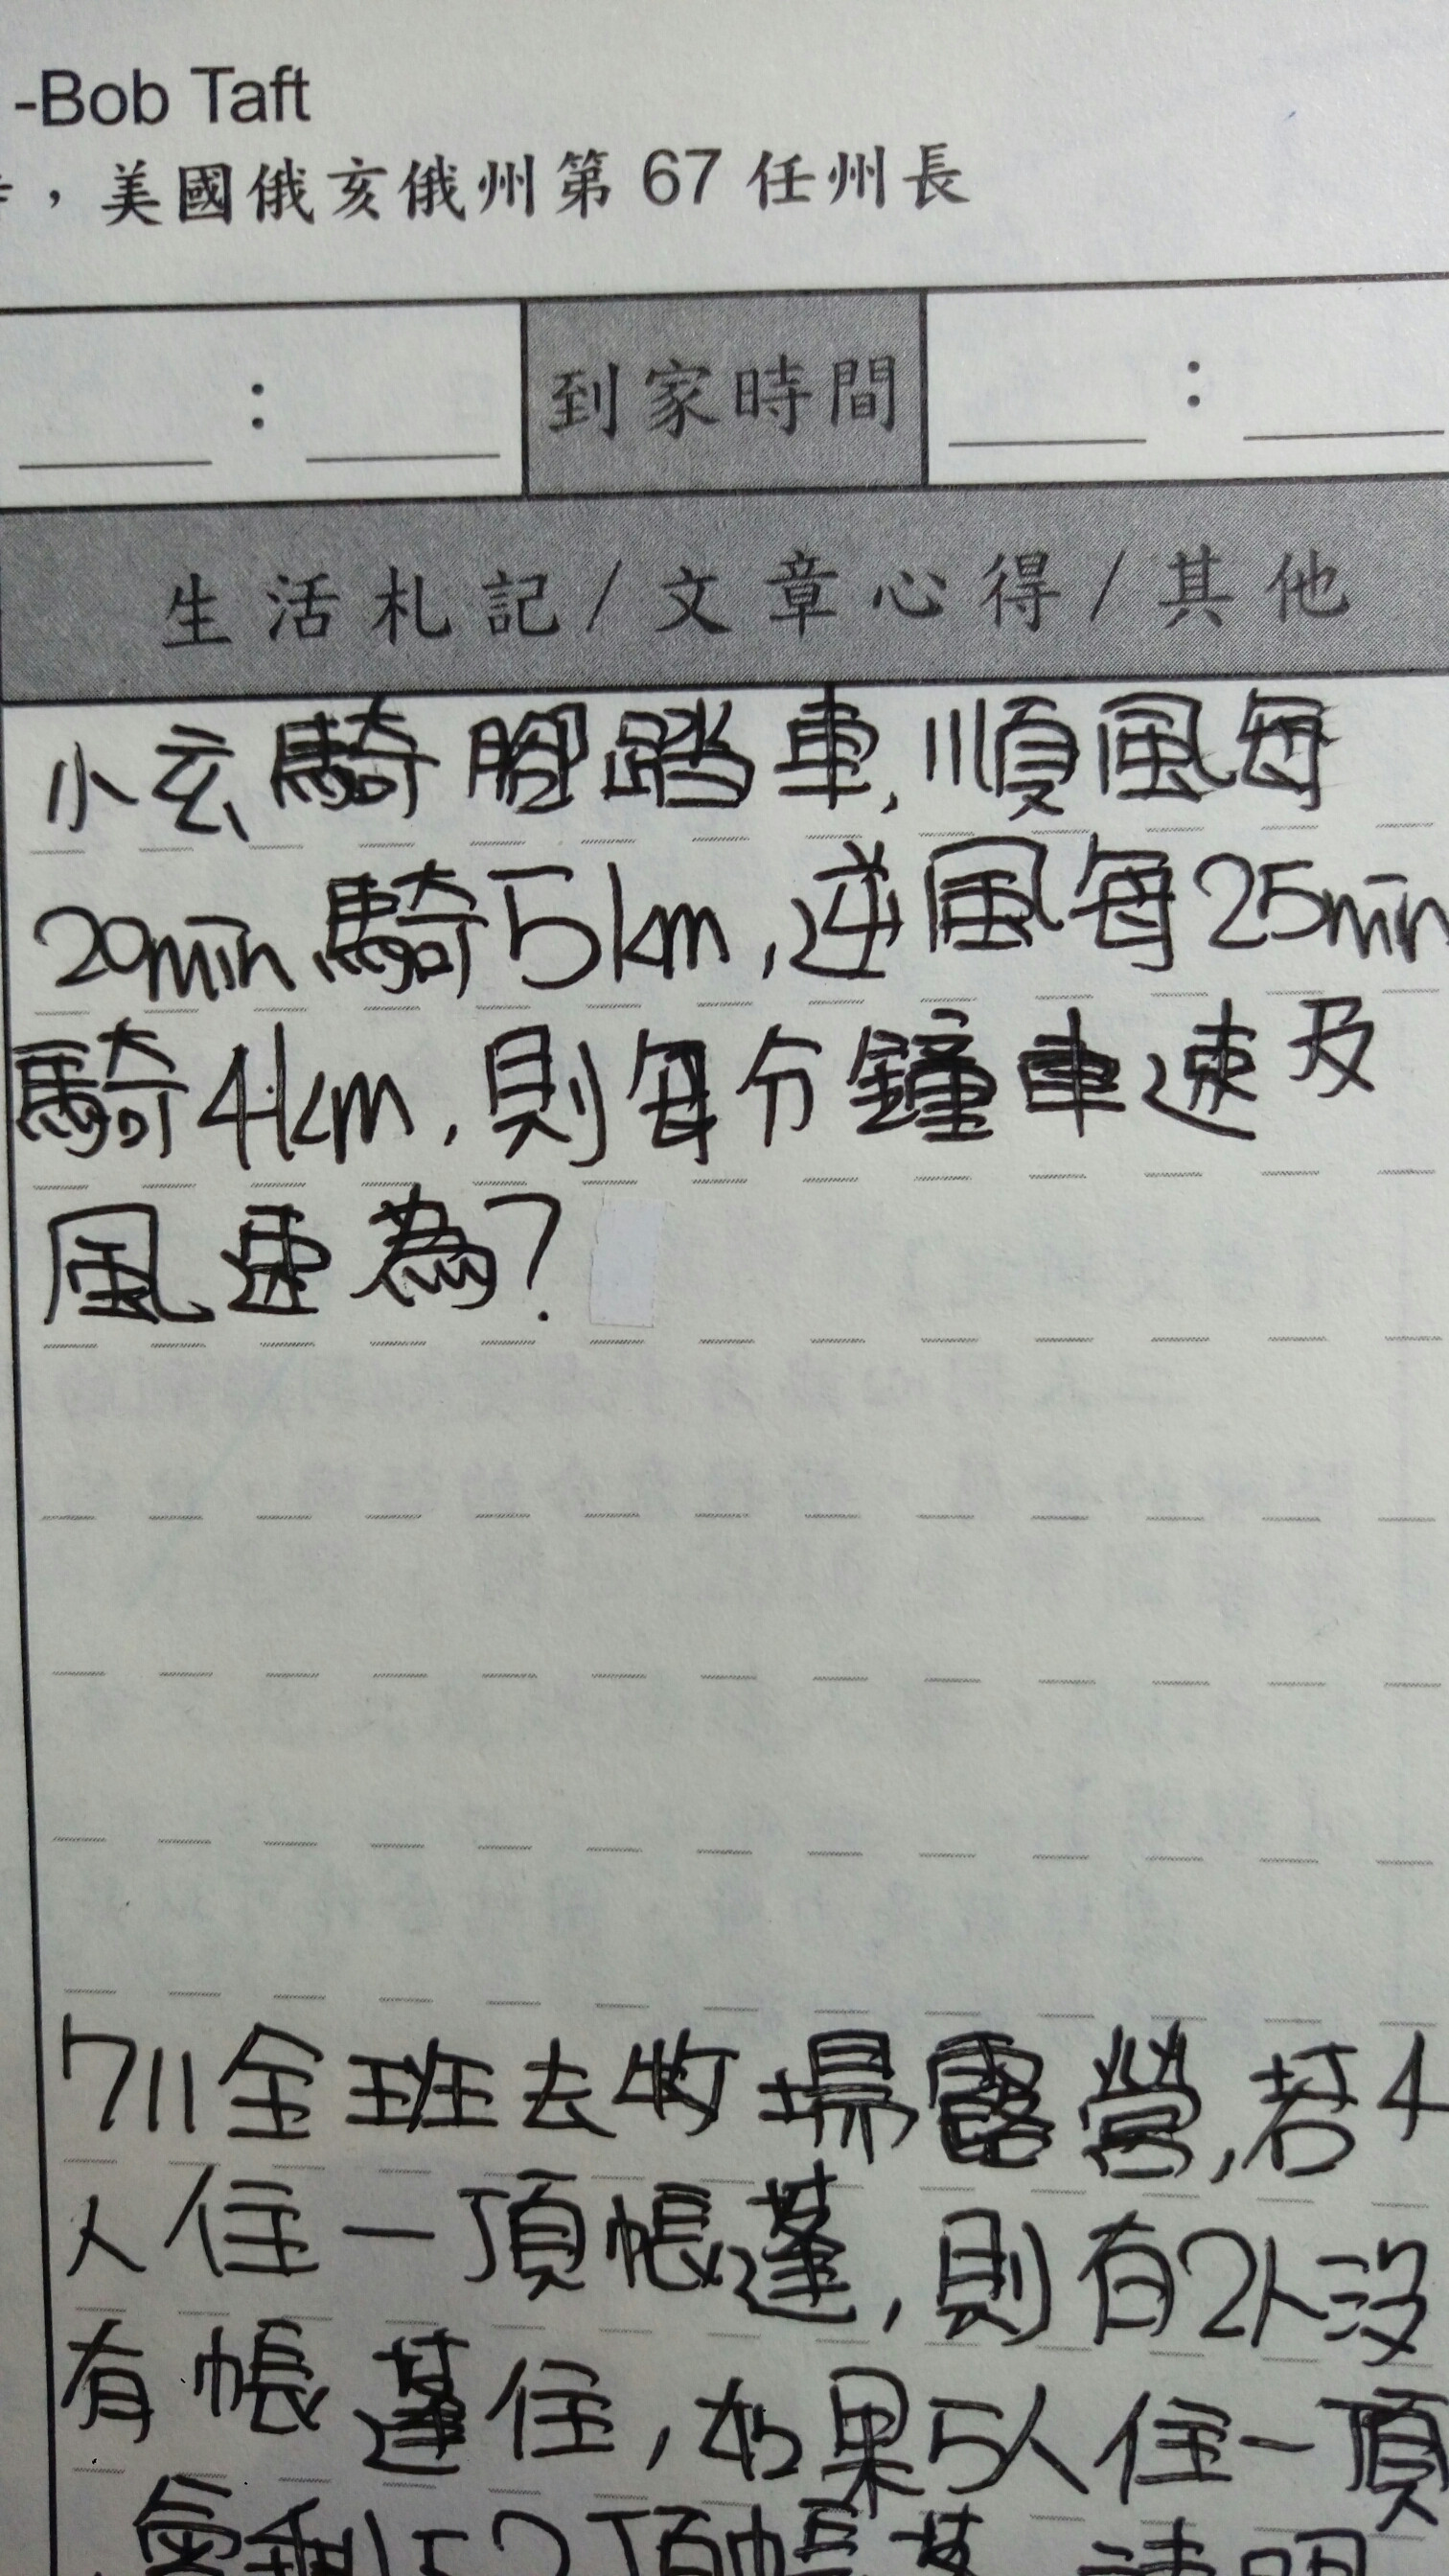 -Bob Taft
，美國俄亥俄州第 67 任州長
： 到家時間 ：
生活札記/文章心得/其他
小玄騎腳踏車,順風每
20min騎5km,逆風每25min
騎4km,則每分鐘車速及
風速為?
711全班去牧場露營,若4
人住一頂帳蓬,則有2人沒
有帳蓬住,如果5人住一頂
會剩下2頂帳蓬